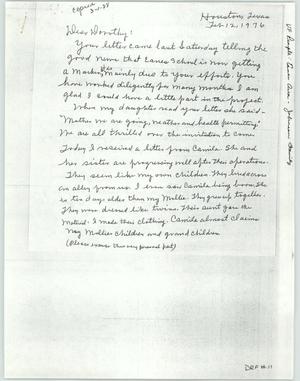 copied
2-1-88
Houston, Texas
Feb 12, 1976
Dear Dorothy:
Your letter came last Saturday telling the
good news that Canes School is now getting
a Marker, Mainly due to your efforts. You
have worked diligently for many months. I am
glad I could have a little part in the project.
When my daughter read your letter she said -
"Mother we are going, weather and health permitting".
We are all thrilled over the invitation to come
Today I received a letter from Camila. She and
her sister are progressing well after their operations.
They seem like my own children. They lived across
an alley from us. I even saw Camila being born. She
is ten days older than my Mollie. They grew up together.
They were dressed like twins. Their aunt gave the
material. I made their clothing. Camila almost claims
my Mollies children and grand children
(Please excuse this very personal part)
Johnson Family
DRF